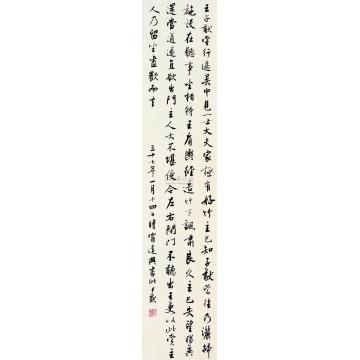 王子猷尝行过吴中见一士大夫家极有好竹主已知子猷当往乃灑埽
施设在聽事坐相待王肩輿經造竹下諷肅良久主已失望猶冀
還當通遂直欲出門主人大不堪便令左右閉門不聽出王更以此赏主
人乃留坐盡歡而去
三十七年一月十四日